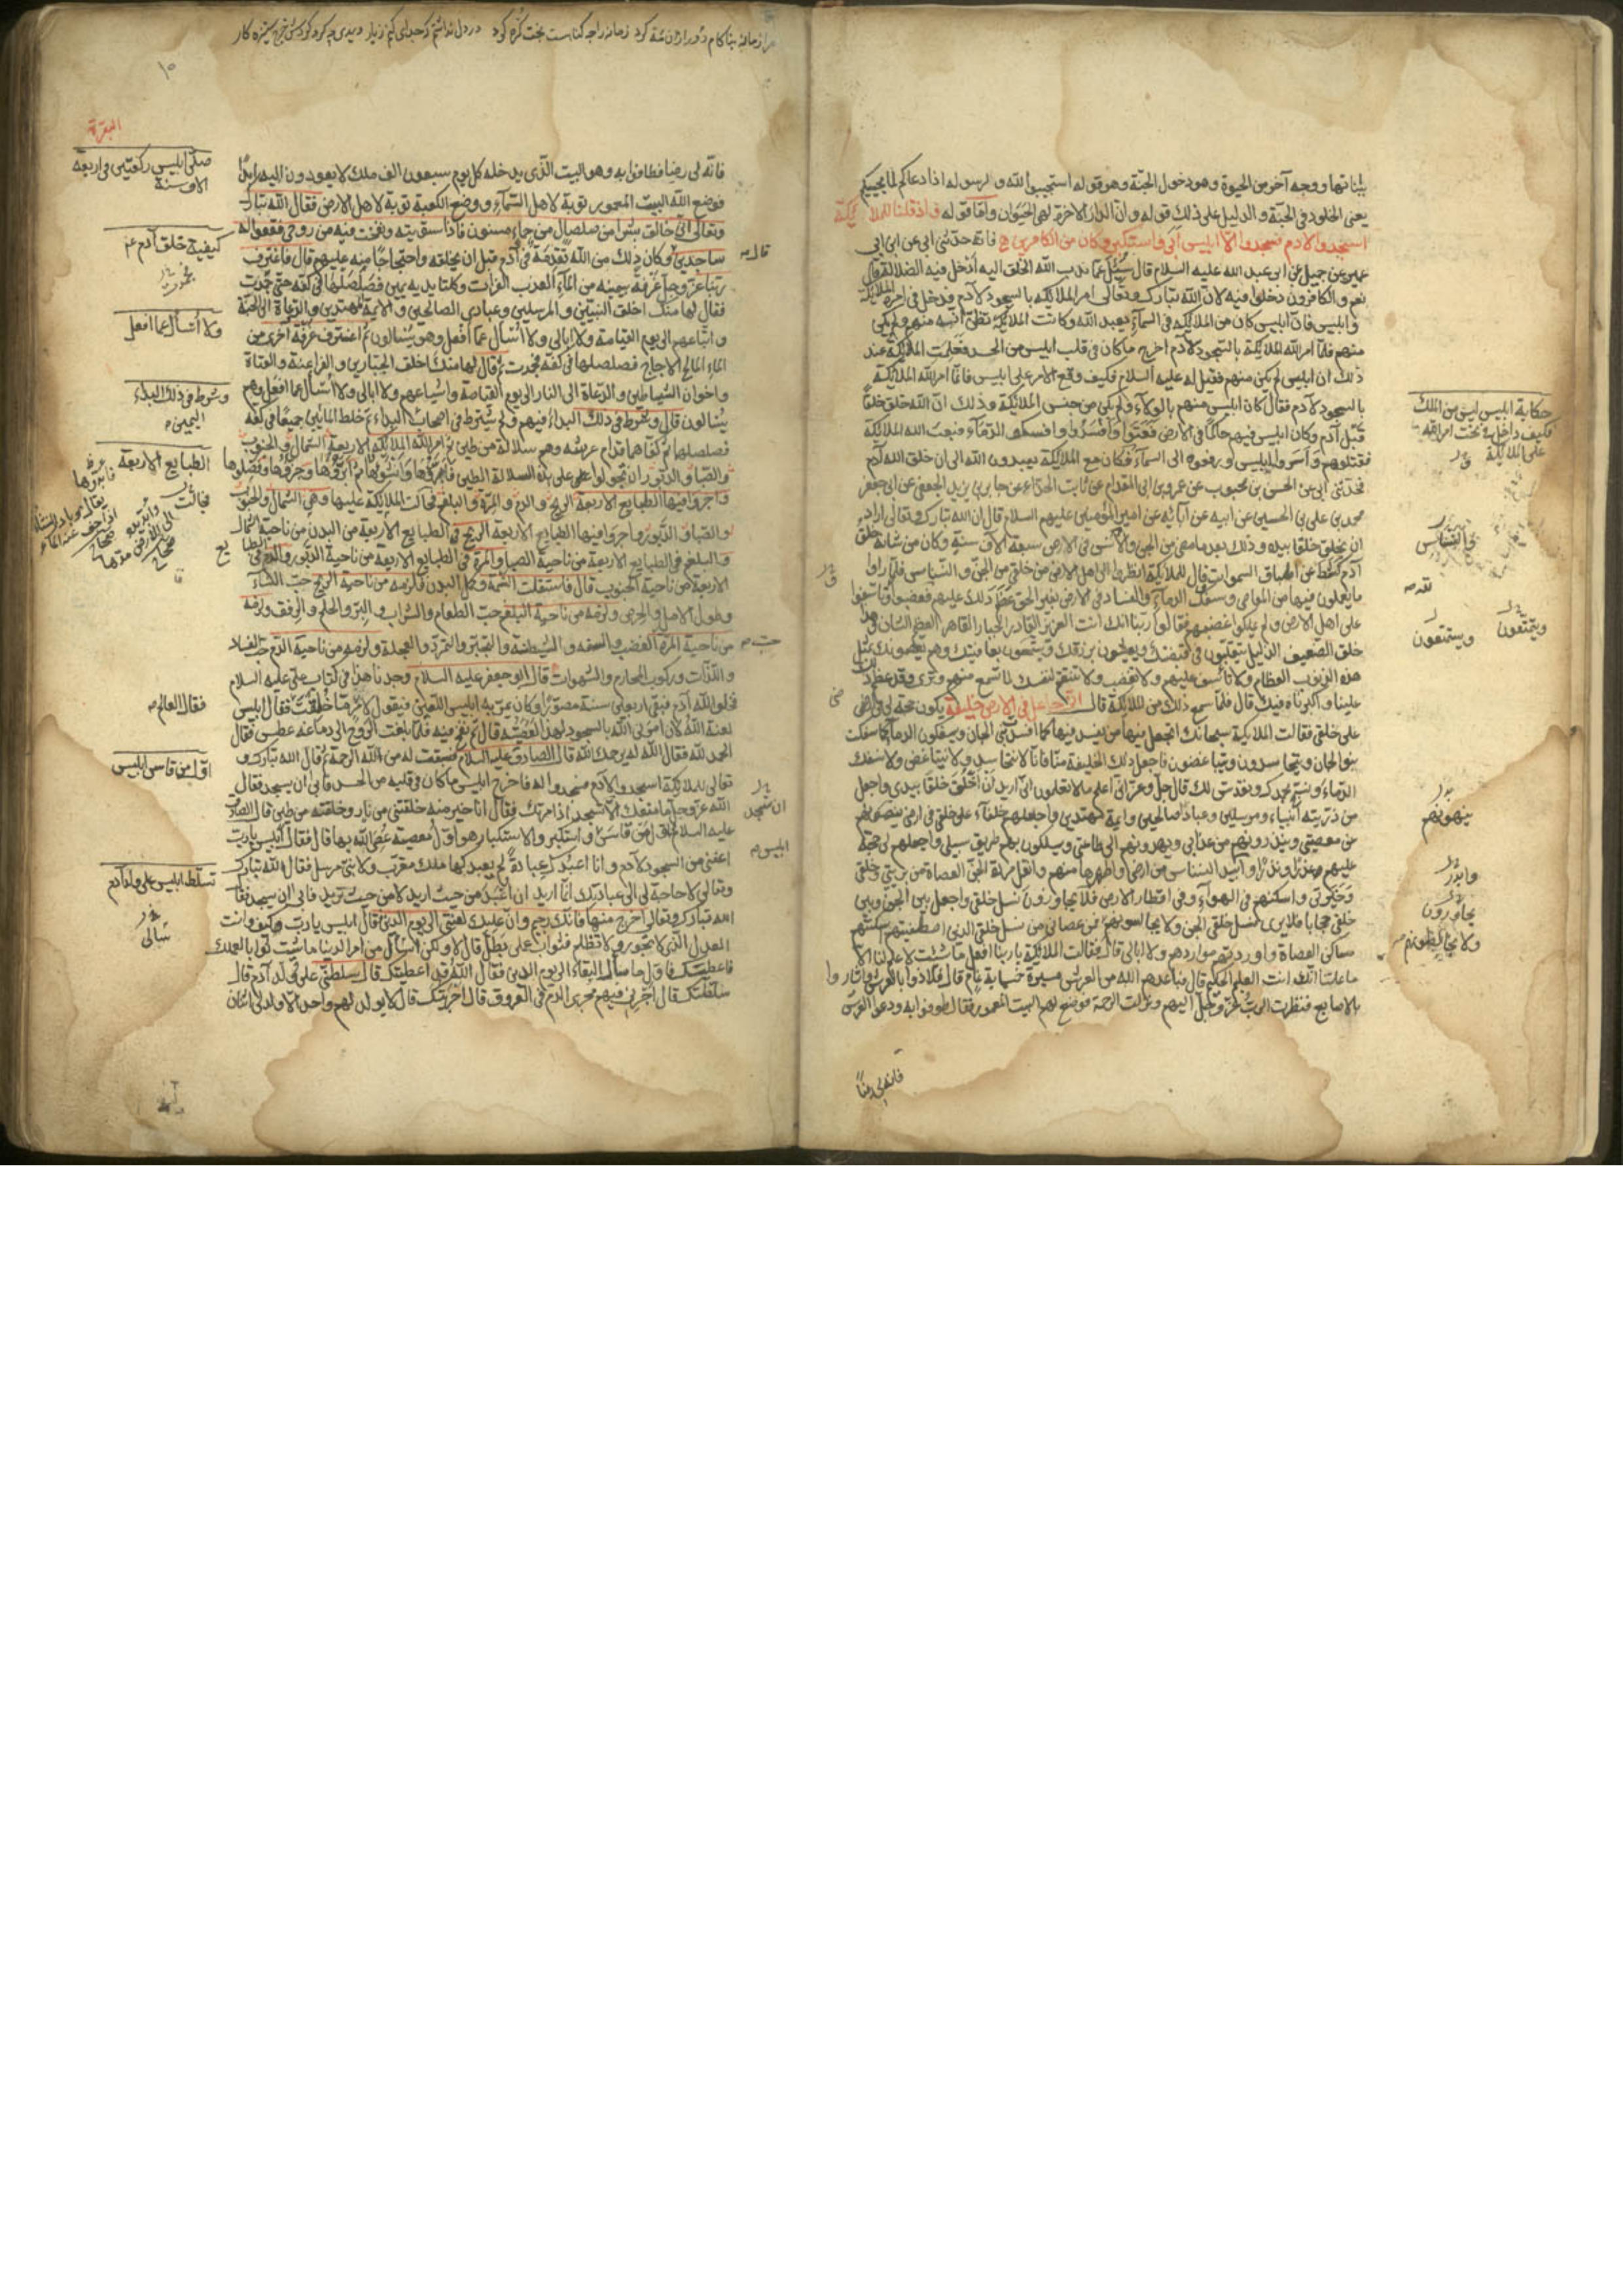 بثباتها ووجه آخر من الحيوة وهو دخول الجنة وهو قوله استجيبوا لله وللرسول اذا دعاكم لما يحييكم
يعنى الخلود فى الجنة والدليل على ذلك قوله وان الدار الآخرة لهى الحيوان واما قوله واذ قلنا للملائكة
اسجدوا لآدم فسجدوا الا ابليس ابى واستكبر وكان من الكافرين فانه حدثنى ابى عن ابن ابى
عمير عن جميل عن ابى عبد الله عليه السلام قال سئل عما ندب الله الخلق اليه أدخل فيه الضلالة قال
نعم والكافرون دخلوا فيه لان الله تبارك وتعالى امر الملائكة بالسجود لآدم فدخل فى امره الملائكة
وابليس فان ابليس كان من الملائكة فى السماء يعبد الله وكانت الملائكة تظن انه منهم ولم يكن
منهم فلما امر الله الملائكة بالسجود لآدم اخرج ما كان فى قلب ابليس من الحسد فعلمت الملائكة عند
ذلك ان ابليس لم يكن منهم فقيل له عليه السلام فكيف وقع الامر على ابليس فانما امر الله الملائكة
بالسجود لآدم فقال كان ابليس منهم بالولاء ولم يكن من جنس الملائكة وذلك ان الله خلق خلقا
قبل آدم وكان ابليس فيهم حاكما فى الارض فعتوا وافسدوا وسفكوا الدماء فبعث الله الملائكة
فقتلوهم وأسروا ابليس ورفعوه الى السماء فكان مع الملائكة يعبدون الله الى ان خلق الله آدم
فحدثنى ابى عن الحسن بن محبوب عن عمرو بن ابى المقدام عن ثابت الحذاء عن جابر بن يزيد الجعفى عن ابى جعفر
محمد بن على بن الحسين عن ابيه عن آبائه عن امير المؤمنين عليهم السلام قال ان الله تبارك وتعالى اراد
ان يخلق خلقا بيده وذلك بعد ما مضى من الجن والنسناس فى الارض سبعة آلاف سنة وكان من شأنه خلق
آدم كشط عن اطباق السموات قال للملائكة انظروا الى اهل الارض من خلقى من الجن والنسناس فلما راوا
ما يعملون فيها من المعاصى وسفك الدماء والفساد فى الارض بغير الحق عظم ذلك عليهم فغضبوا وتأسفوا
على اهل الارض ولم يملكوا غضبهم فقالوا ربنا انك انت العزيز القادر الجبار القاهر العظيم الشان وهذا
خلقك الضعيف الذليل يتقلبون فى قبضتك ويعيشون برزقك ويتمتعون بعافيتك وهم يعصونك بمثل
هذه الذنوب العظام ولا تأسف عليهم ولا تغضب ولا تنتقم لنفسك لما تسمع منهم وترى وقد عظم ذلك
علينا واكبرناه فيك قال فلما سمع ذلك من الملائكة قال انى جاعل فى الارض خليفة يكون حجة لى فى ارضى
على خلقى فقالت الملائكة سبحانك اتجعل فيها من يفسد فيها كما افسد بنى الجان ويسفكون الدماء كما سفكت
بنو الجان ويتحاسدون ويتباغضون فاجعل ذلك الخليفة منا فانا لا نتحاسد ولا نتباغض ولا نسفك
الدماء ونسبح بحمدك ونقدس لك قال جل وعز انى اعلم ما لا تعلمون انى اريد ان اخلق خلقا بيدى واجعل
من ذريته أنبياء ومرسلين وعبادا صالحين وايمة مهتدين واجعلهم خلفاء على خلقى فى ارضى ينهونهم
عن معصيتى وينذرونهم من عذابى ويهدونهم الى طاعتى ويسلكون بهم طريق سبيلى واجعلهم لى حجة
عليهم وعذرا ونذرا وابيد النسناس من ارضى واطهرها منهم وانقل مردة الجن العصاة من بريتى وخلقى
وخيرتى واسكنهم فى الهواء وفى اقطار الارض فلا يجاورون نسل خلقى واجعل بين الجن وبين
خلقى حجابا فلا يرى نسل خلقى الجن ولا يجالسونهم فمن عصانى من نسل خلقى الذين اصطفيتهم اسكنتهم
مساكن العصاة واوردتهم مواردهم ولا ابالى قال فقالت الملائكة يا ربنا افعل ما شئت لا علم لنا الا
ما علمتنا انك انت العليم الحكيم قال فباعدهم الله من العرش مسيرة خمسماية عام قال فلاذوا بالعرش واشاروا
بالاصابع فنظرت الرب عز وجل اليهم ونزلت الرحمة فوضع لهم البيت المعمور فقال طوفوا به ودعوا العرش
فانه لى رضا
حكاية ابليس ليس من الملك
فكيف داخل تحت امر الله
على الملائكة
والنسناس
ويتمتعون
ويستمتعون
ينهونهم
وابدر
يجاورون
ولا يخالطونهم
البقرة
صلى ابليس ركعتين فى اربعة
آلاف سنة
كيفية خلق آدم ع
ولا أسأل عما افعل
وشرط فى ذلك البداء
اليمين
الطبايع الاربعة
فقال العالم
اول من قاس ابليس
تسلط ابليس على ولد آدم
فانه لى رضا فطافوا به وهو البيت الذى يدخله كل يوم سبعون الف ملك لا يعودون اليه ابدا
فوضع الله البيت المعمور توبة لاهل السماء ووضع الكعبة توبة لاهل الارض فقال الله تبارك
وتعالى انى خالق بشرا من صلصال من حماء مسنون فاذا سويته ونفخت فيه من روحى فقعوا له
ساجدين وكان ذلك من الله تقدمة فى آدم قبل ان يخلقه واحتجاجا منه عليهم قال فاغترف
ربنا عز وجل غرفة بيمينه من الماء العذب الفرات وكلتا يديه يمين فصلصلها فى كفه حتى جمدت
فقال لها منك اخلق النبيين والمرسلين وعبادى الصالحين والايمة المهتدين والدعاة الى الجنة
واتباعهم الى يوم القيامة ولا ابالى ولا اسأل عما افعل وهم يسألون ثم اغترف غرفة اخرى من
الماء المالح الاجاج فصلصلها فى كفه فجمدت ثم قال لها منك اخلق الجبارين والفراعنة والعتاة
واخوان الشياطين والدعاة الى النار الى يوم القيامة واشياعهم ولا ابالى ولا أسأل عما افعل وهم
يسألون قال وشرط فى ذلك البداء فيهم ولم يشترط فى اصحاب اليمين البداء ثم خلط المائين جميعا فى كفه
فصلصلهما ثم كفاهما قدام عرشه وهم سلالة من طين ثم امر الله الملائكة الاربعة الشمال والجنوب
والصبا والدبور ان يجولوا على هذه السلالة الطين فابرؤها وانشوها ثم ابرؤها وجزؤها وفصلوها
واجروا فيها الطبايع الاربعة الريح والدم والمرة والبلغم فجالت الملائكة عليها وهى الشمال والجنوب
والصبا والدبور واجروا فيها الطبايع الاربعة الريح فى الطبايع الاربعة من البدن من ناحية الشمال
والبلغم فى الطبايع الاربعة من ناحية الصبا والمرة فى الطبايع الاربعة من ناحية الدبور والدم فى الطبايع
الاربعة من ناحية الجنوب قال فاستقلت النسمة وكمل البدن فلزمه من ناحية الريح حب النساء
وطول الامل والحرص ولزمه من ناحية البلغم حب الطعام والشراب والبر والحلم والرفق ولزمه
من ناحية المرة الغضب والسفه والشيطنة والتجبر والتمرد والعجلة ولزمه من ناحية الدم حب الفساد
واللذات وركوب المحارم والشهوات قال ابو جعفر عليه السلام وجدنا هذا فى كتاب على عليه السلام
فخلق الله آدم فبقى اربعين سنة مصورا وكان يمر به ابليس اللعين فيقول لامر ما خلقت فقال ابليس
لعنه الله لان امرنى الله بالسجود لهذا لعصيته قال ثم نفخ فيه فلما بلغت الروح الى دماغه عطس فقال
الحمد لله فقال الله له يرحمك الله قال الصادق عليه السلام فسبقت له من الله الرحمة ثم قال الله تبارك و
تعالى للملائكة اسجدوا لآدم فسجدوا له فاخرج ابليس ما كان فى قلبه من الحسد فابى ان يسجد فقال
الله عز وجل ما منعك الا تسجد اذ امرتك فقال انا خير منه خلقتنى من نار وخلقته من طين قال الصادق
عليه السلام فاول من قاس ابليس واستكبر والاستكبار هو اول معصية عصى الله بها قال فقال ابليس يا رب
اعفنى من السجود لآدم وانا اعبدك عبادة لم يعبدكها ملك مقرب ولا نبى مرسل فقال الله تبارك
وتعالى لا حاجة لى الى عبادتك انما اريد ان اعبد من حيث اريد لا من حيث تريد فابى ان يسجد فقال
الله تبارك وتعالى اخرج منها فانك رجيم وان عليك لعنتى الى يوم الدين قال ابليس يا رب وكيف وانت
العدل الذى لا تجور ولا تظلم فثواب عملى بطل قال لا ولكن اسأل من امر الدنيا ما شئت ثوابا لعملك
فاعطيتك فاول ما سأل البقاء الى يوم الدين فقال الله قد اعطيتك قال سلطنى على ولد آدم قال
سلطتك قال اجرنى فيهم مجرى الدم فى العروق قال اجريتك قال لا يولد لهم واحد الا ولد لى اثنان